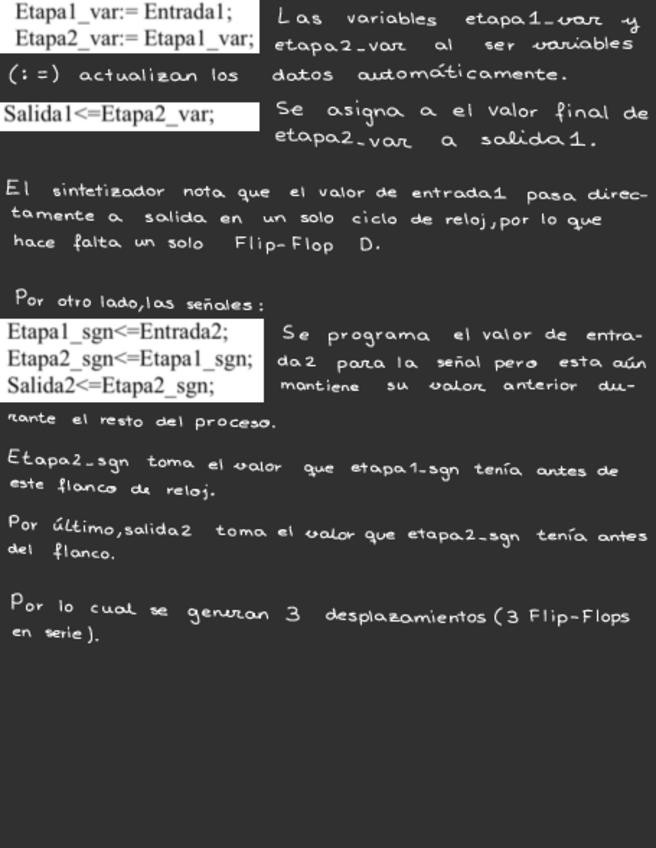 Etapa1_var:= Entrada1;
Etapa2_var:= Etapa1_var;
Las variables etapa1_var y
etapa2_var al ser variables
(:=) actualizan los datos automáticamente.
Salida1<=Etapa2_var;
Se asigna a el valor final de
etapa2_var a salida1.
El sintetizador nota que el valor de entrada1 pasa direc-
tamente a salida en un solo ciclo de reloj, por lo que
hace falta un solo Flip-Flop D.
Por otro lado, las señales:
Etapa1_sgn<=Entrada2;
Etapa2_sgn<=Etapa1_sgn;
Salida2<=Etapa2_sgn;
Se programa el valor de entra-
da2 para la señal pero esta aún
mantiene su valor anterior du-
rante el resto del proceso.
Etapa2_sgn toma el valor que etapa1_sgn tenía antes de
este flanco de reloj.
Por último, salida2 toma el valor que etapa2_sgn tenía antes
del flanco.
Por lo cual se generan 3 desplazamientos (3 Flip-Flops
en serie).